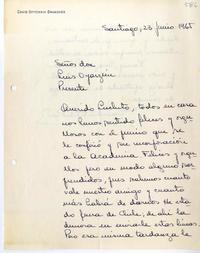 586
Santiago, 23 Junio 1965
Señor don
Luis Oyarzun
Presente
Querido Luchito, todos en casa
nos hemos sentido felices y orgu
llosos con el premio que se
le confirió y su incorporación
a la Academia. Felices y orgu
llosos pero en modo alguno sor
prendidos, pues sabemos cuanto
vale nuestro amigo y cuanto
más habrá de darnos. He esta
do fuera de Chile, de ahí la
demora en enviarle estas líneas.
Pero esa misma tardanza le